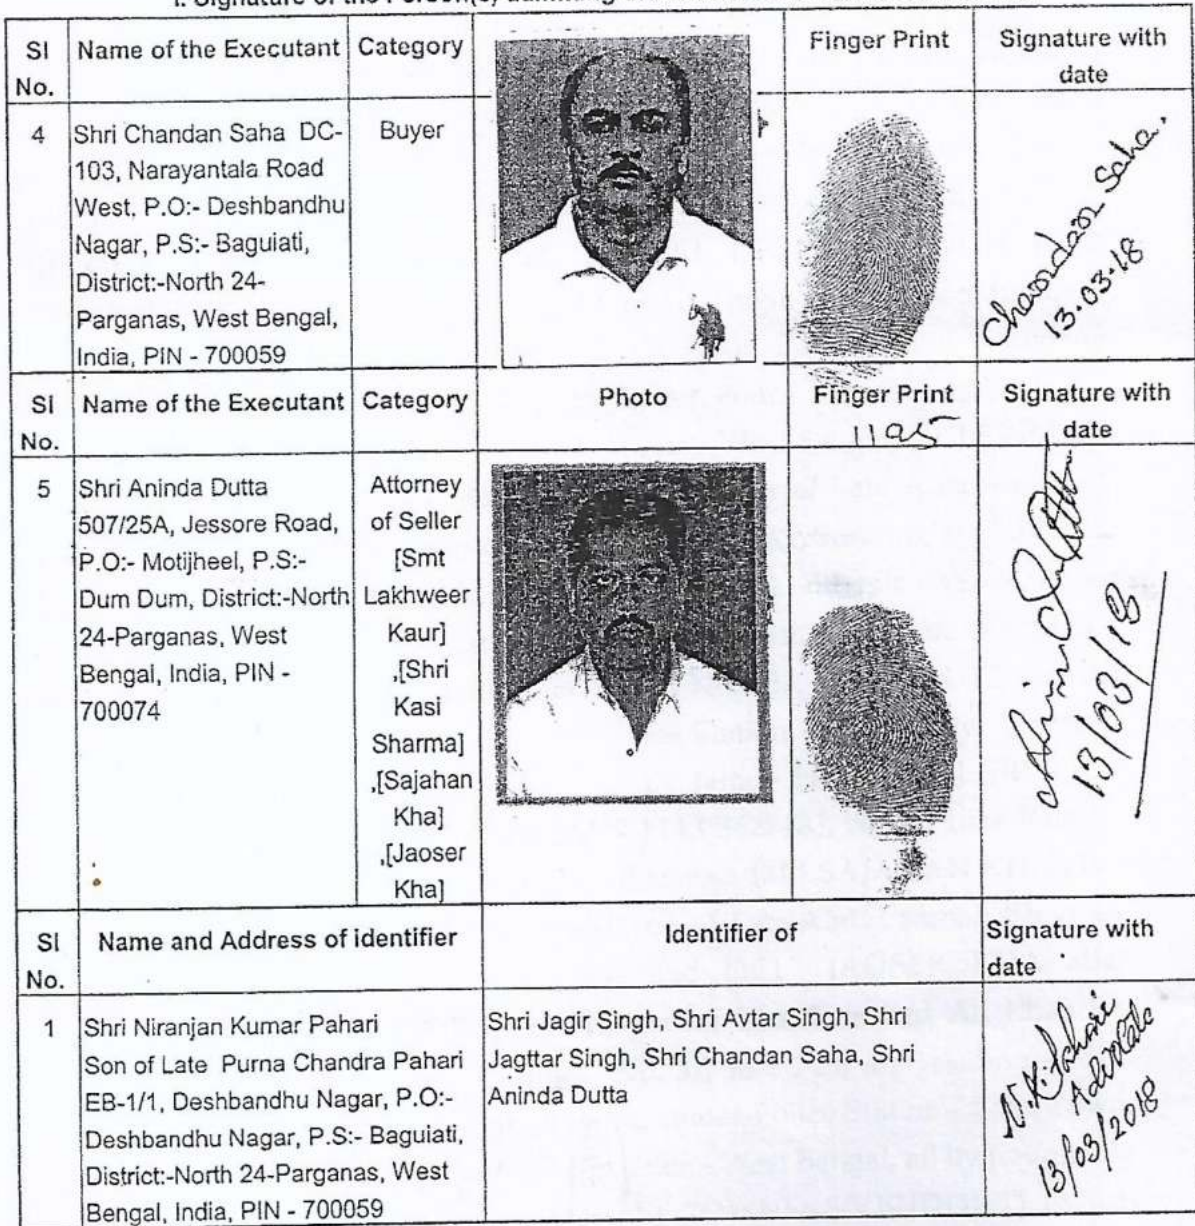 I. Signature of the Person(s) admitting
Sl No. Name of the Executant Category Finger Print Signature with date
4 Shri Chandan Saha DC-
103, Narayantala Road
West, P.O:- Deshbandhu
Nagar, P.S:- Baguiati,
District:-North 24-
Parganas, West Bengal,
India, PIN - 700059
Buyer
Chandan Saha.
13.03.18
Sl No. Name of the Executant Category Photo Finger Print Signature with date
1195
5 Shri Aninda Dutta
507/25A, Jessore Road,
P.O:- Motijheel, P.S:-
Dum Dum, District:-North
24-Parganas, West
Bengal, India, PIN -
700074
Attorney
of Seller
[Smt
Lakhweer
Kaur]
,[Shri
Kasi
Sharma]
,[Sajahan
Kha]
,[Jaoser
Kha]
Aninda Dutta
13/03/18
Sl No. Name and Address of identifier Identifier of Signature with date
1 Shri Niranjan Kumar Pahari
Son of Late Purna Chandra Pahari
EB-1/1, Deshbandhu Nagar, P.O:-
Deshbandhu Nagar, P.S:- Baguiati,
District:-North 24-Parganas, West
Bengal, India, PIN - 700059
Shri Jagir Singh, Shri Avtar Singh, Shri
Jagttar Singh, Shri Chandan Saha, Shri
Aninda Dutta
N.K. Pahari
Advocate
13/03/2018